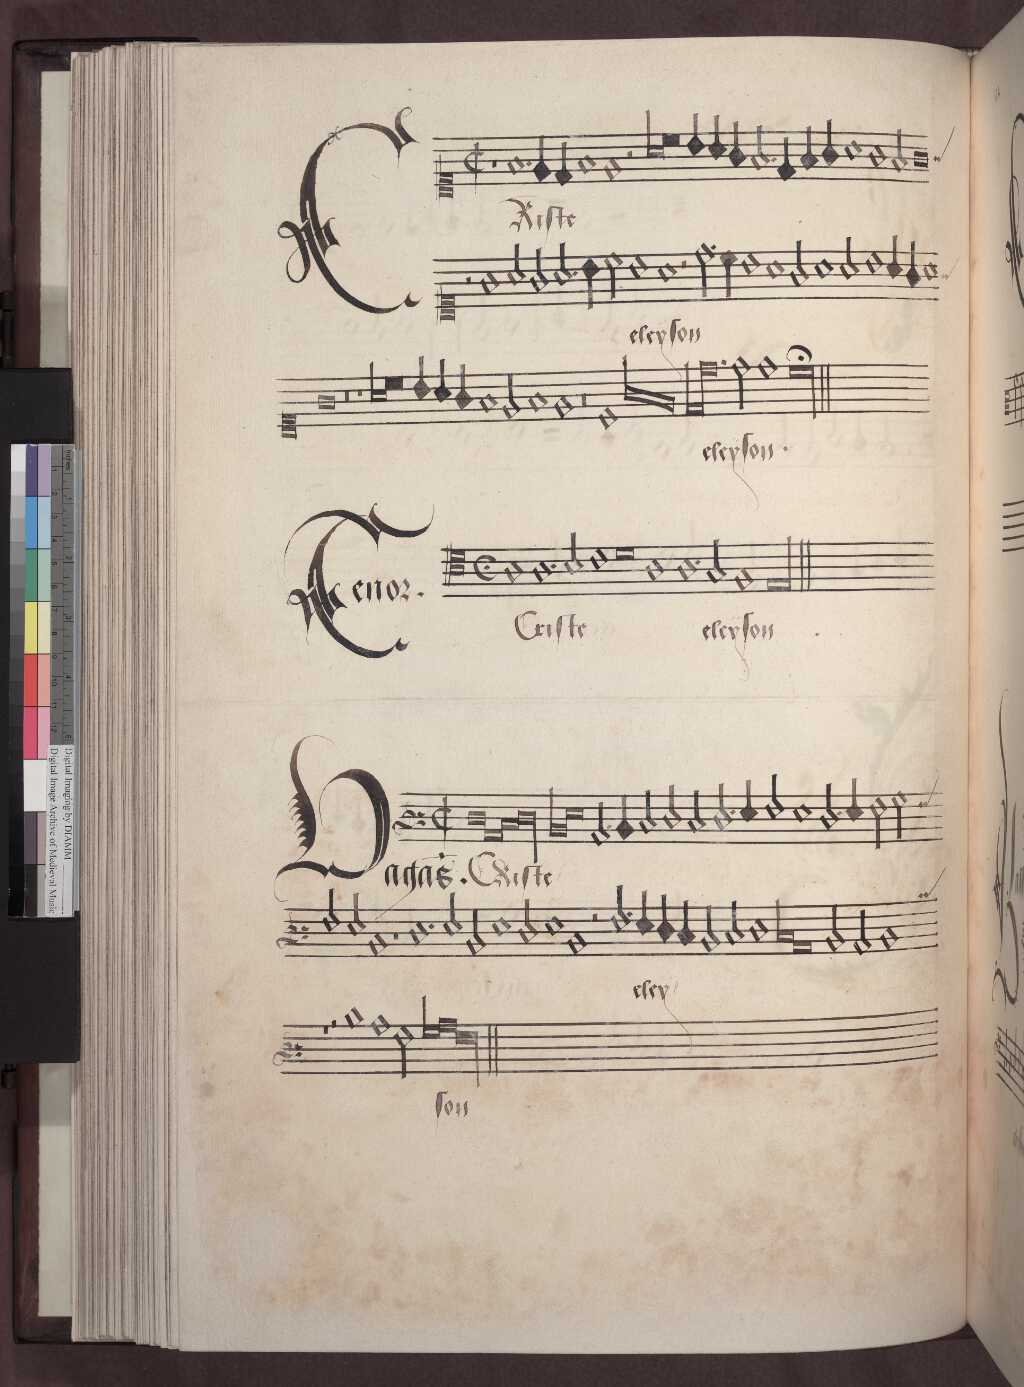 CRiste
eleyson
eleyson.
Tenor.
Criste eleyson.
Vagans. Criste
eley
son
Digital Imaging by DIAMM
Digital Image Archive of Medieval Music